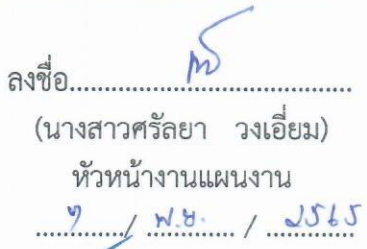 ลงชื่อ................................................
(นางสาวศรัลยา วงเอี่ยม)
หัวหน้างานแผนงาน
............/ พ.ย. ........ / 2565